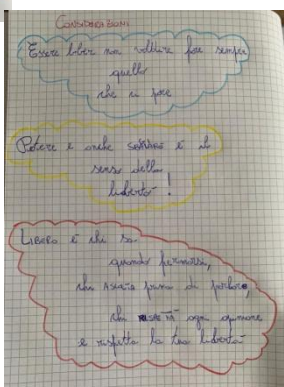 CONSIDERAZIONI
Essere liberi non vuol dire fare sempre
quello
che si pare
Potere è anche
senso della
libertà!
LIBERO è chi sa
quando fermarsi,
chi ASCOLTA prima di parlare,
chi ogni opinione
e rispetta la tua libertà